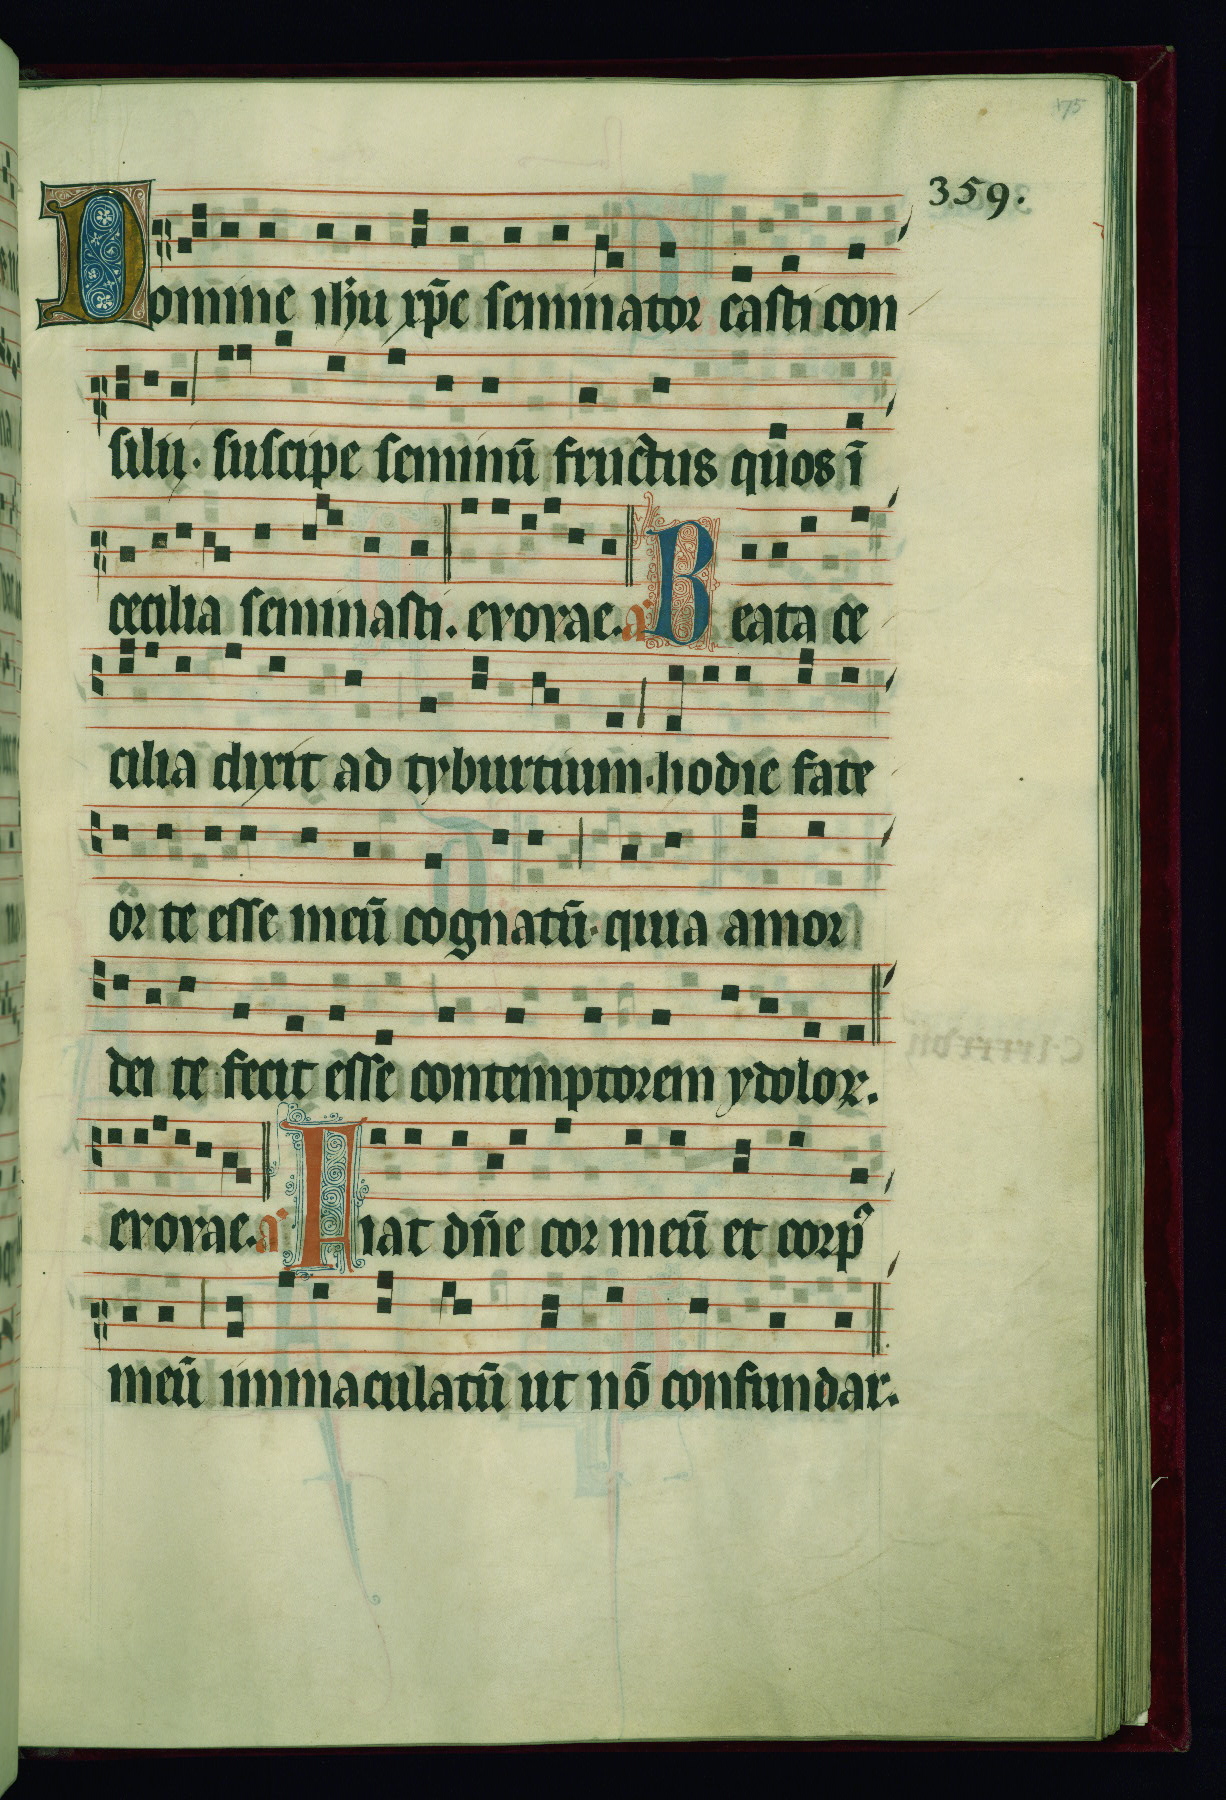 175
359.
Domine ihu xpē seminator casti con
silij. suscipe seminū fructus quos ī
cecilia seminasti. evovae. a Beata ce
cilia dixit ad tyburtium. hodie fate
or te esse meū cognatū. quia amor
dei te fecit esse contemptorem ydolor.
evovae. a Fiat dn̄e cor meū et corp
meū immaculatū ut nō confundar.